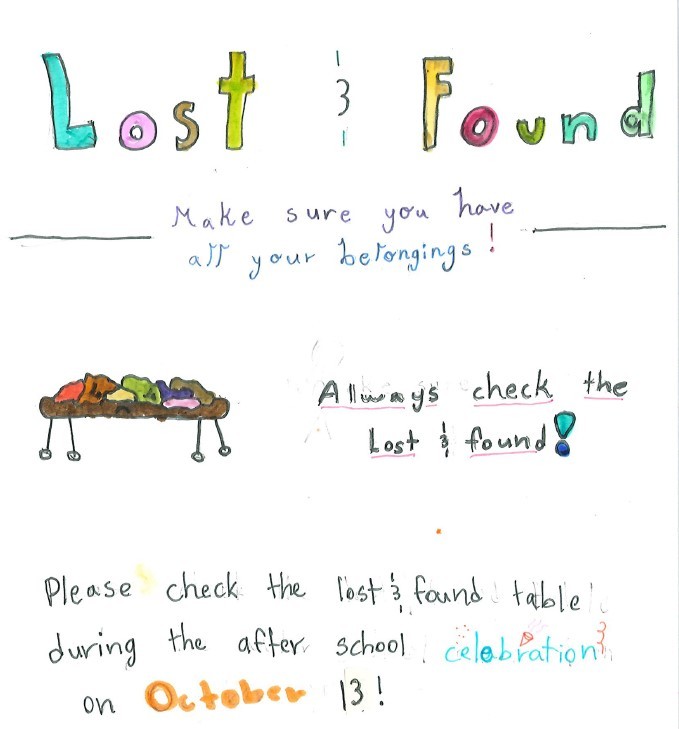 Lost & Found
Make sure you have
all your belongings!
Always check the
Lost & found!
Please check the lost & found table
during the after school celebration
on October 13!